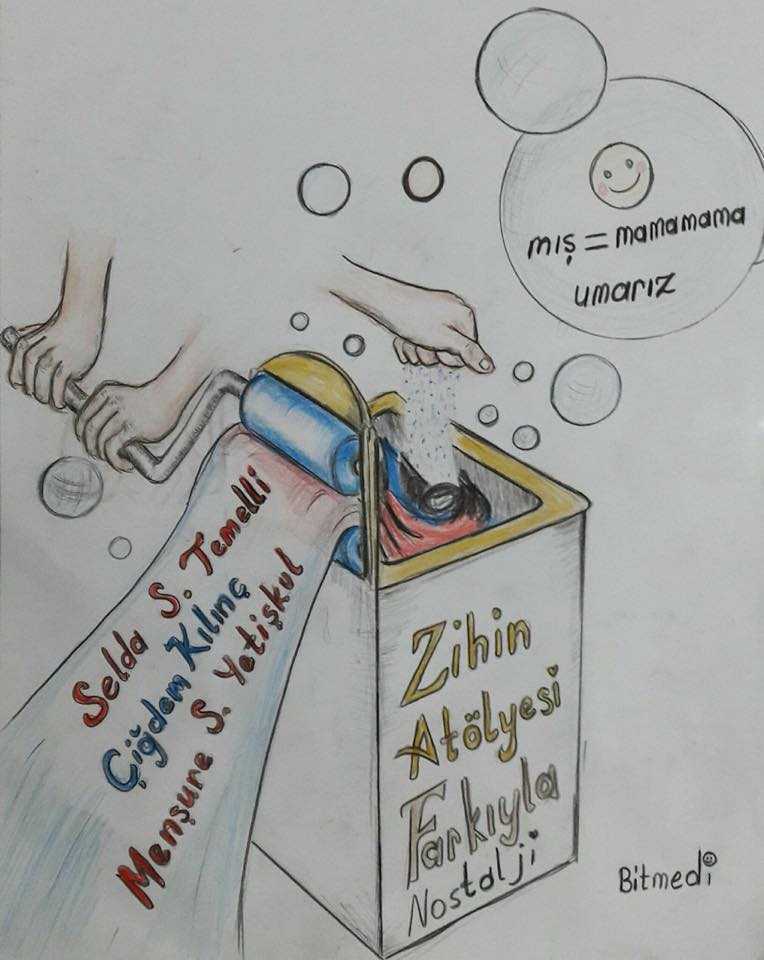 mış = mamamama
umarız
Selda S. Temelli
Çiğdem Kılınç
Menşure S. Yetişkul
Zihin
Atölyesi
Farkıyla
Nostalji
Bitmedi